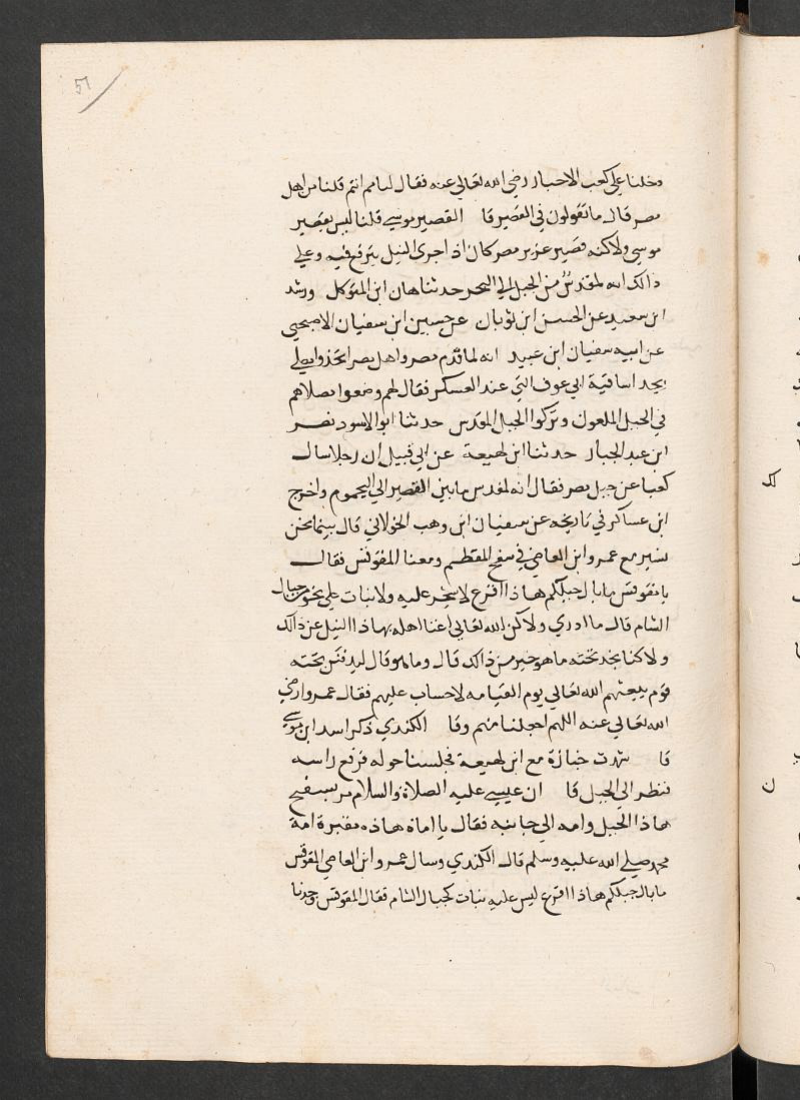 51
دخلنا على كعب الاحبار رضي الله تعالى عنه فقال لنا ممم انتم قلنا من اهل
مصر قال ما تقولون في القصير قا القصير موسى قلنا ليس بقصير
موسى ولاكنه قصير عزيز مصر كان اذا جرى النيل يترفع فيه وعلى
ذالك انه لمقدس من الجبل الى البحر حدثنا هاني ابن المتوكل ورشد
ابن سعيد عن الحسن ابن ثوبان عن حسين ابن سفيان الاصبحي
عن ابيه سفيان ابن عبيد انه لما قدم مصر واهل مصر اتخذوا مصلى
بحدا ساقية ابي عوف التي عند العسكر فقال لهم وضعوا مصلاهم
في الجبل الملعون وتركوا الجبل المقدس حدثنا ابو الاسود نصر
ابن عبد الجبار حدثنا ابن لهيعة عن ابي قبيل ان رجلا سال
كعبا عن جبل مصر فقال انه لمقدس ما بين القصير الى اليحموم واخرج
ابن عساكر في تاريخه عن سفيان ابن وهب الخولاني قال بينما نحن
نسير مع عمرو ابن العاصي في سفح المقطم ومعنا المقوقس فقال
يا مقوقس ما بال جبلكم هاذا اقرع لا شجر عليه ولا نبات على نحو من جبال
الشام قال ما ادري ولاكن الله تعالى اغنا اهله بهاذا النيل عن ذالك
ولاكنا نجد تحته ما هو خير من ذالك قال وما هو قال ليدفنن تحته
قوم يبعثهم الله تعالى يوم القيامه لا حساب عليهم فقال عمرو رضي
الله تعالى عنه اللهم اجعلنا منهم وقا الكندي ذكر اسد ابن موسى
قا شهدت جنازة مع ابن لهيعة فجلسنا حوله فرفع راسه
فنظر الى الجبل قا ان عيسى عليه الصلاة والسلام مر بسفح
هاذا الجبل وامه الى جانبه فقال يا اماه هاذه مقبرة امة
محمد صلى الله عليه وسلم قال الكندي وسال عمرو ابن العاصي المقوقس
ما بال جبلكم هاذا اقرع ليس عليه نبات كجبال الشام فقال المقوقس وجدنا